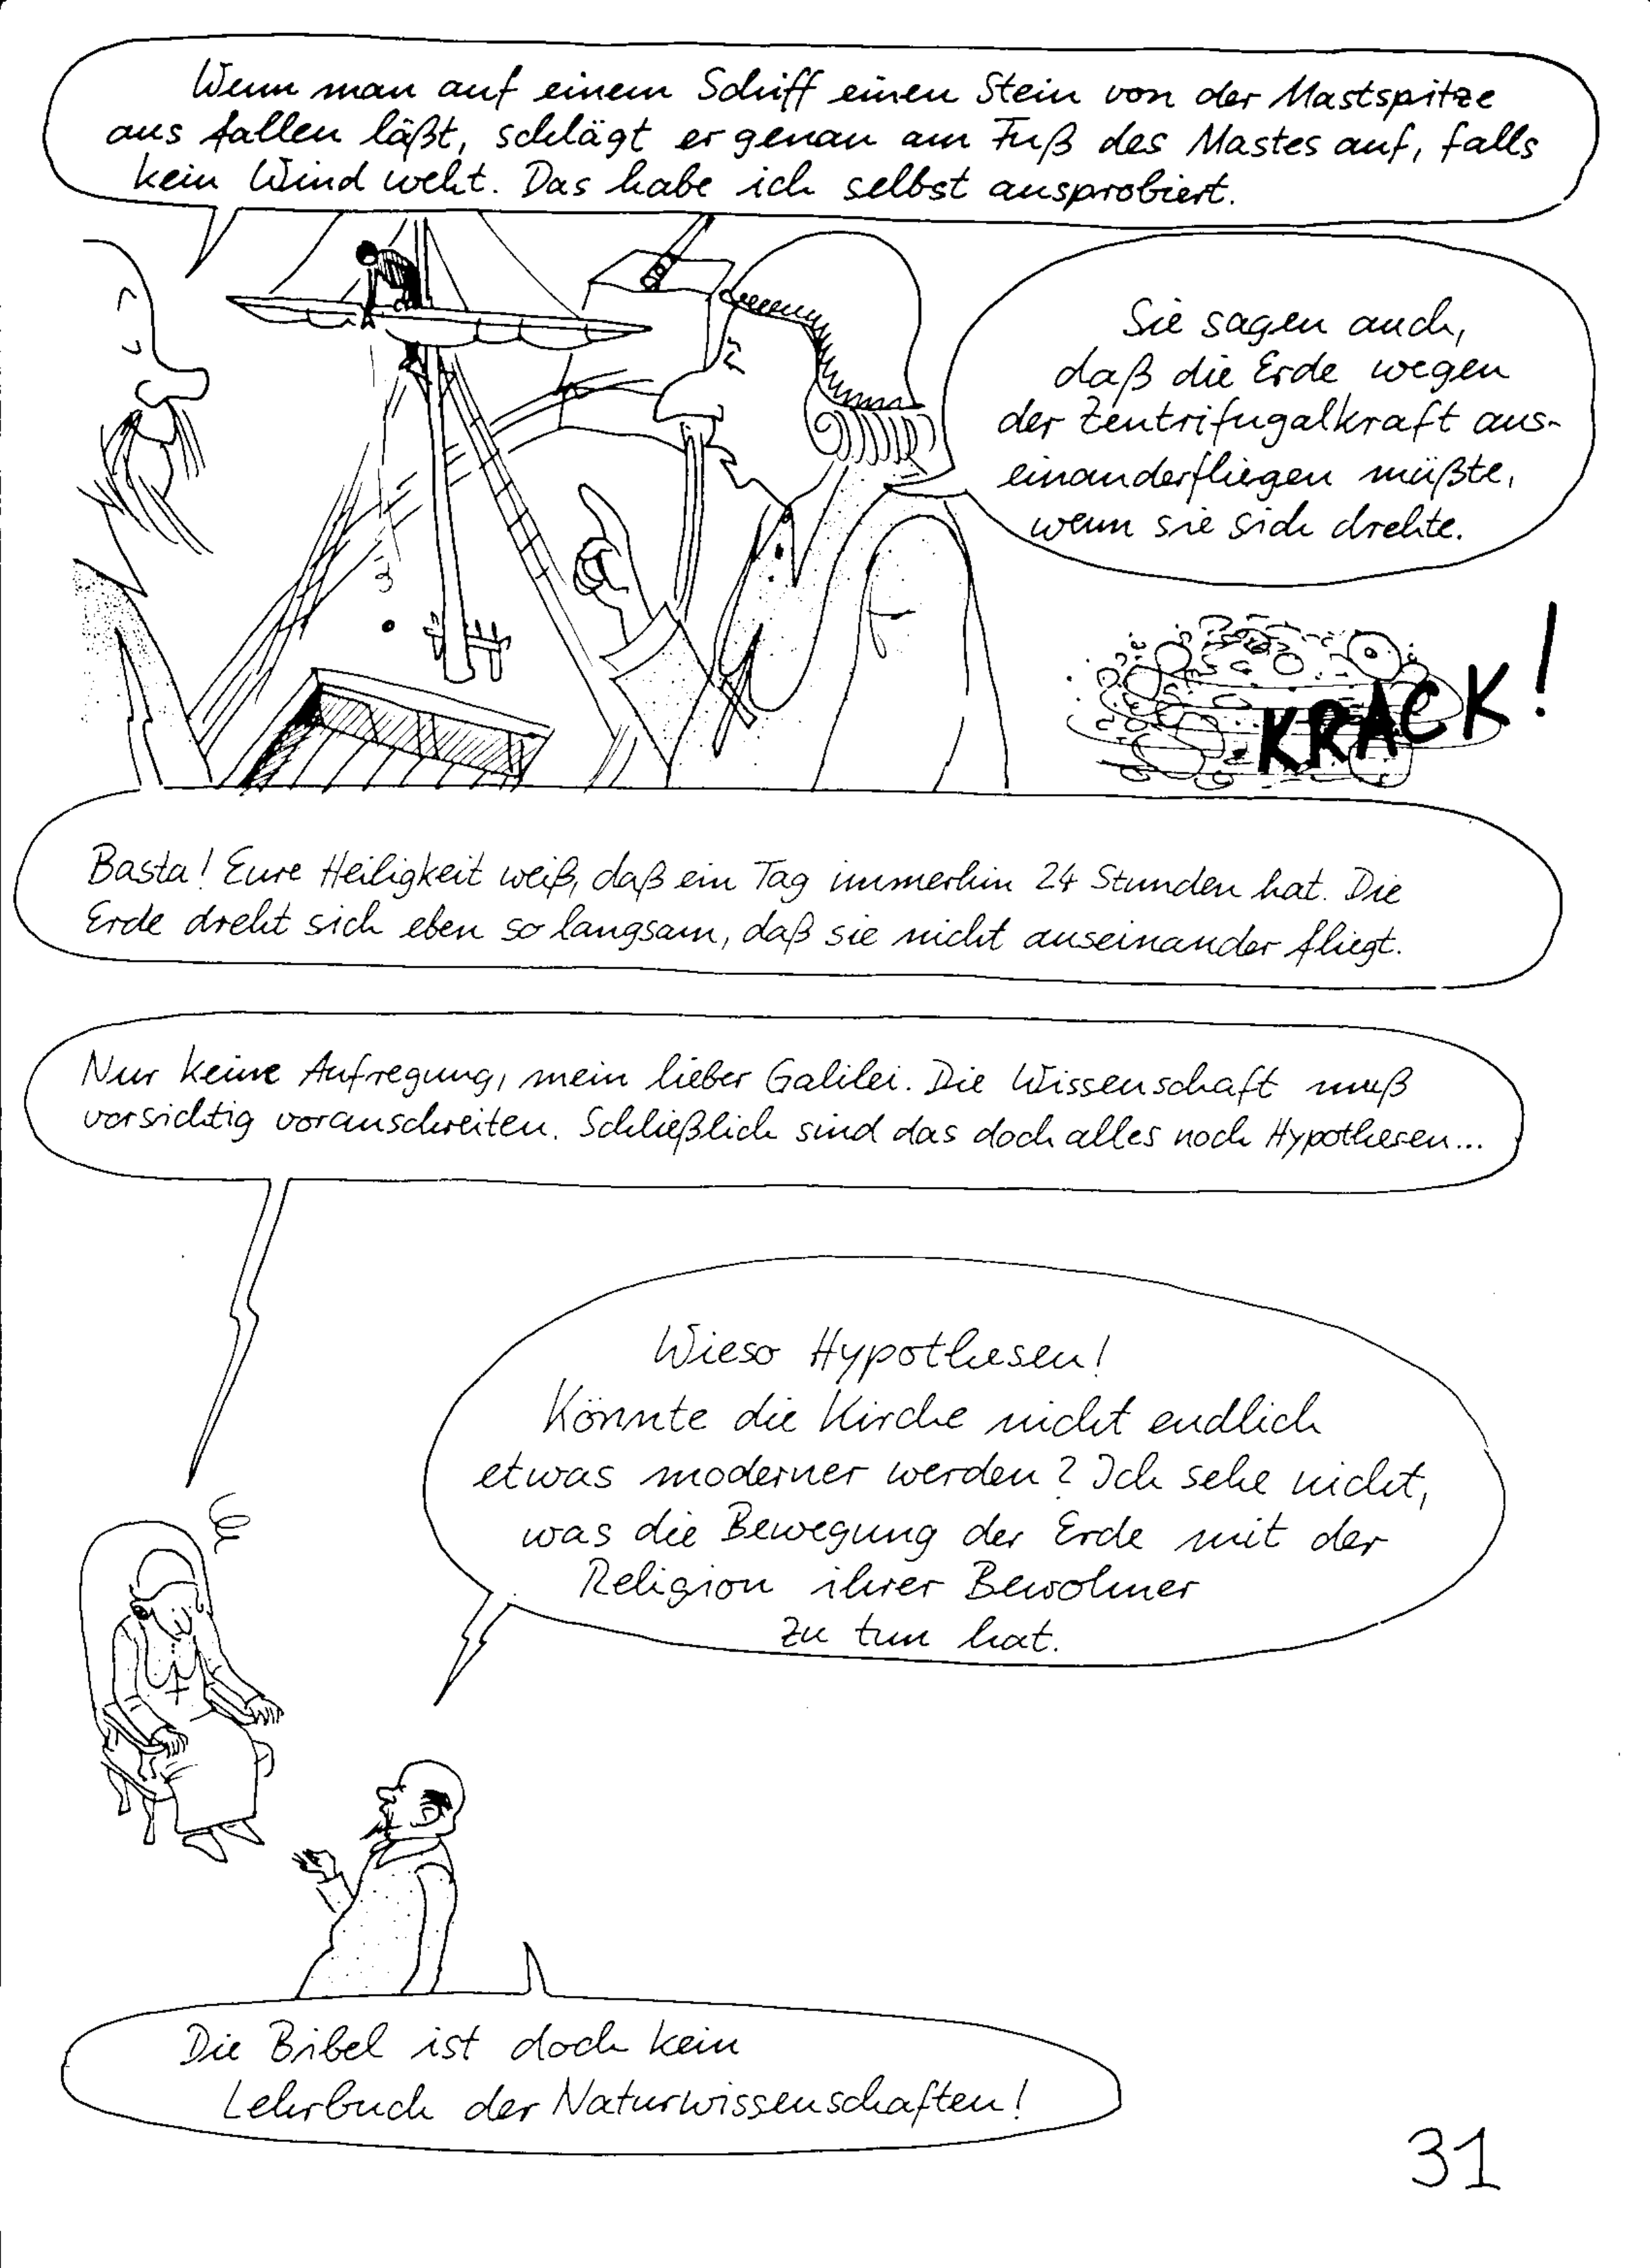 Wenn man auf einem Schiff einen Stein von der Mastspitze
aus fallen läßt, schlägt er genau am Fuß des Mastes auf, falls
kein Wind weht. Das habe ich selbst ausprobiert.
Sie sagen auch,
daß die Erde wegen
der Zentrifugalkraft aus-
einanderfliegen müßte,
wenn sie sich drehte.
KRACK!
Basta! Eure Heiligkeit weiß, daß ein Tag immerhin 24 Stunden hat. Die
Erde dreht sich eben so langsam, daß sie nicht auseinander fliegt.
Nur keine Aufregung, mein lieber Galilei. Die Wissenschaft muß
vorsichtig voranschreiten. Schließlich sind das doch alles noch Hypothesen...
Wieso Hypothesen!
Könnte die Kirche nicht endlich
etwas moderner werden? Ich sehe nicht,
was die Bewegung der Erde mit der
Religion ihrer Bewohner
zu tun hat.
Die Bibel ist doch kein
Lehrbuch der Naturwissenschaften!
31